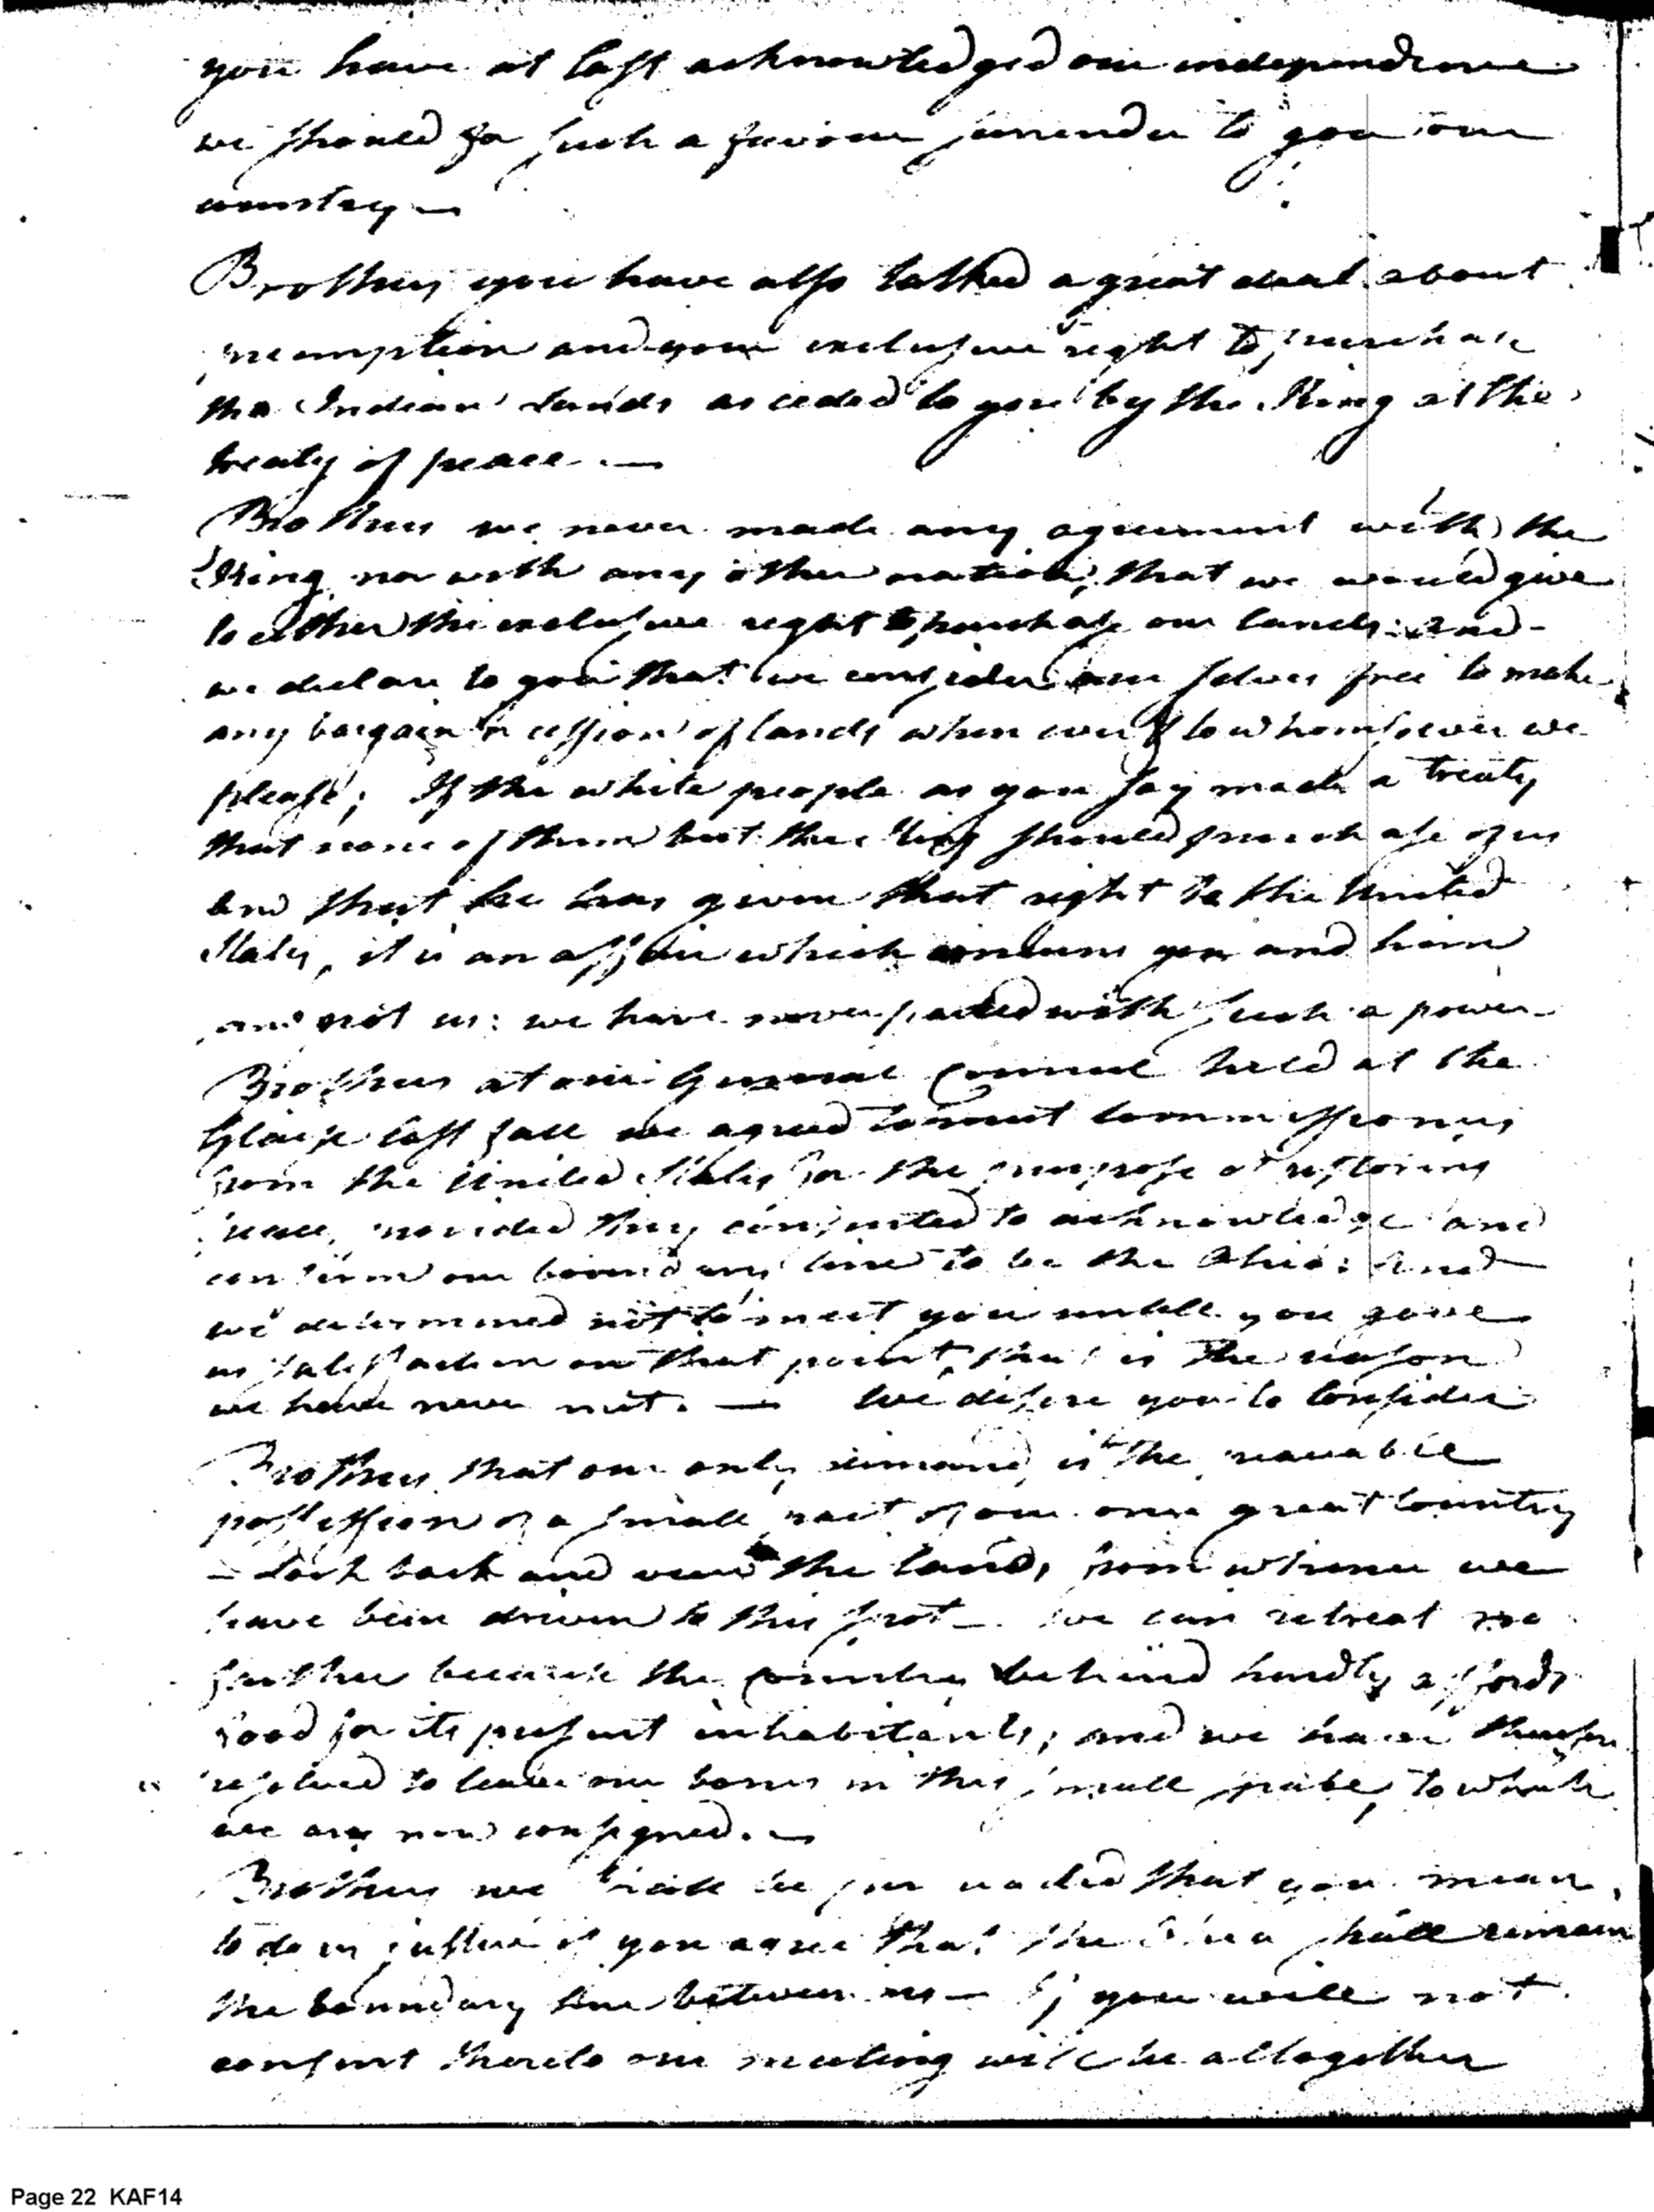 you have at last acknowledged our independence
we should for such a favour surrender to you our
country —
Brothers you have also talked a great deal about
preemption and your exclusive right to purchase
the Indian lands as ceded to you by the King at the
treaty of peace. —
Brothers we never made any agreement with the
King, nor with any other nation, that we would give
to either the exclusive right to purchase our lands: and
we declare to you that we consider our selves free to make
any bargain or cession of lands when ever & to whomsoever we
please; If the white people as you say made a treaty
that none of them but the King should purchase of us
and that he has given that right to the United
States, it is an affair which concerns you and him
and not us: we have never parted with such a power —
Brothers at our General Council held at the
Glaize last fall we agreed to meet Commissioners
from the United States for the purpose of restoring
peace, provided they consented to acknowledge and
confirm our boundary line to be the Ohio: And
we determined not to meet you untill you gave
us satisfaction on that point, that is the reason
we have never met. — We desire you to Consider
Brothers, that our only demand, is the peaceable
possession of a small part of our once great Country
— Look back and view the lands from whence we
have been driven to this spot — we can retreat no
further because the country behind hardly affords
food for its present inhabitants; and we have therefore
resolved to leave our bones in this small space, to which
we are now consigned. —
Brothers we shall be persuaded that you mean
to do us justice if you agree that the Ohio shall remain
the boundary line between us — If you will not
consent thereto our meeting will be altogether
Page 22 KAF14